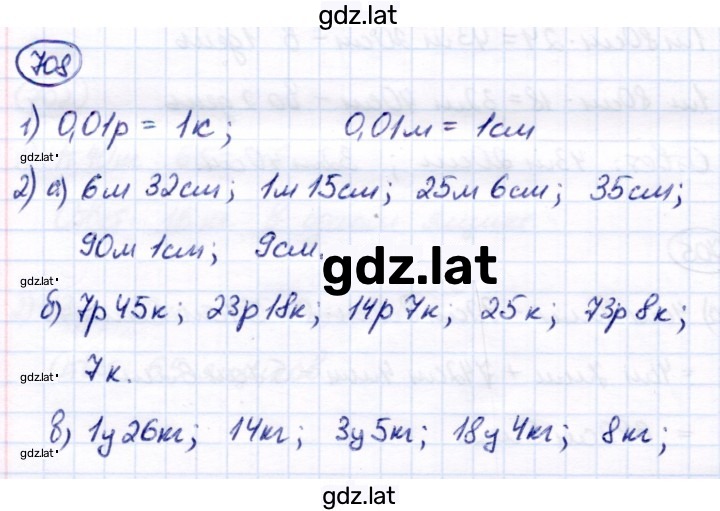 gdz.lat
708
1) 0,01р = 1к; 0,01м = 1см
gdz.lat
2) а) 6м 32см; 1м 15см; 25м 6см; 35см;
90м 1см; 9см.
gdz.lat
б) 7р 45к; 23р 18к; 14р 7к; 25к; 73р 8к;
gdz.lat
7к.
в) 1ц 26кг; 14кг; 3ц 5кг; 18ц 4кг; 8кг;
gdz.lat
gdz.lat